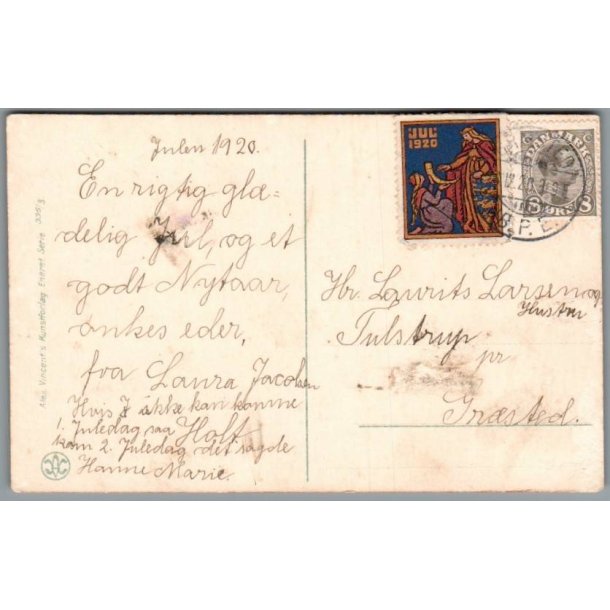 Julen 1920.
En rigtig glæ-
delig Jul, og et
godt Nytaar,
önkes eder,
fra Laura Jacobsen
Hvis I ikke kan komme
1. Juledag saa Holt
kom 2. Juledag det sagde
Hanne Marie.
Alex. Vincent's Kunstforlag Eneret Serie
JUL
1920
DANMARK
8 ØRE 8
Hr. Laurits Larsen og
Hustru
Tulstrup
pr
Græsted.